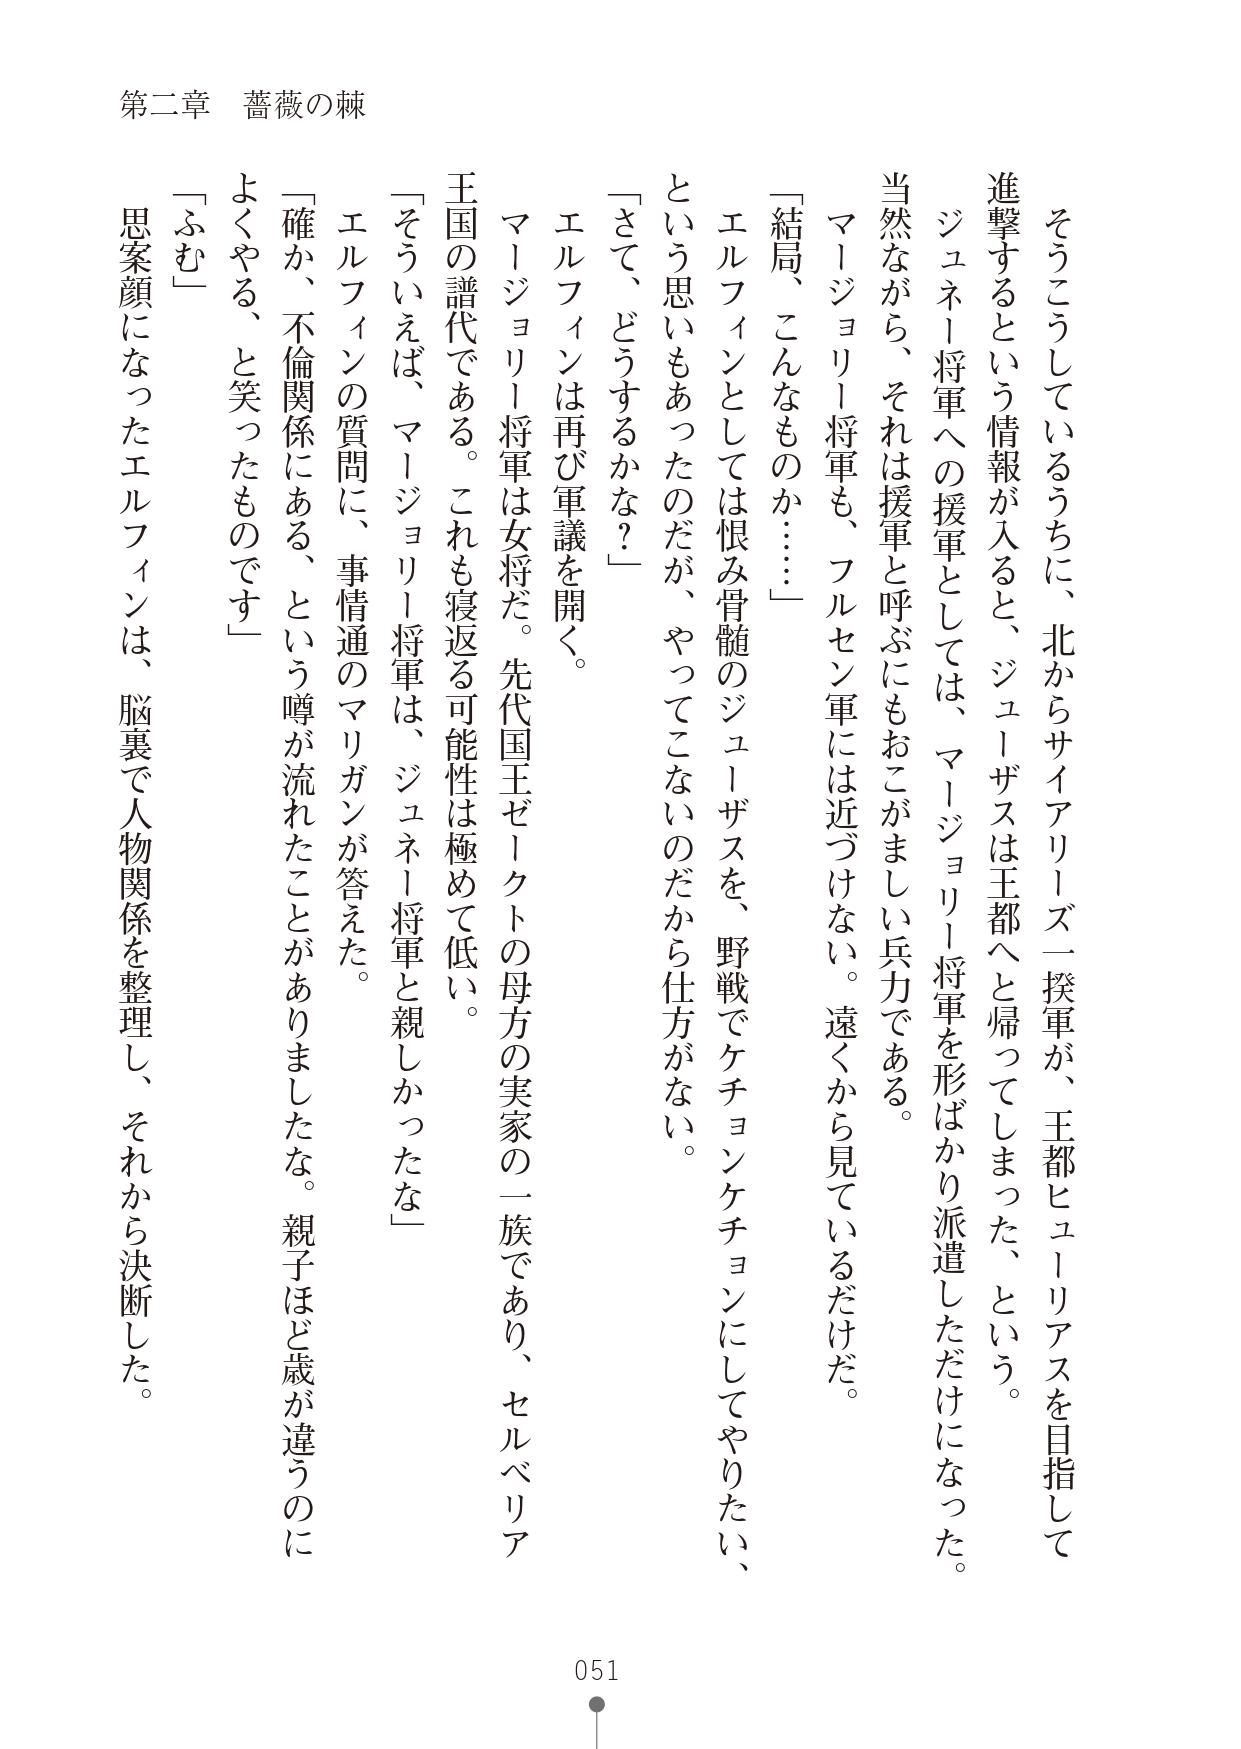 第二章　薔薇の棘
　そうこうしているうちに、北からサイアリーズ一揆軍が、王都ヒューリアスを目指して
進撃するという情報が入ると、ジューザスは王都へと帰ってしまった、という。
　ジュネー将軍への援軍としては、マージョリー将軍を形ばかり派遣しただけになった。
当然ながら、それは援軍と呼ぶにもおこがましい兵力である。
　マージョリー将軍も、フルセン軍には近づけない。遠くから見ているだけだ。
「結局、こんなものか……」
　エルフィンとしては恨み骨髄のジューザスを、野戦でケチョンケチョンにしてやりたい、
という思いもあったのだが、やってこないのだから仕方がない。
「さて、どうするかな？」
　エルフィンは再び軍議を開く。
　マージョリー将軍は女将だ。先代国王ゼークトの母方の実家の一族であり、セルベリア
王国の譜代である。これも寝返る可能性は極めて低い。
「そういえば、マージョリー将軍は、ジュネー将軍と親しかったな」
　エルフィンの質問に、事情通のマリガンが答えた。
「確か、不倫関係にある、という噂が流れたことがありましたな。親子ほど歳が違うのに
よくやる、と笑ったものです」
「ふむ」
　思案顔になったエルフィンは、脳裏で人物関係を整理し、それから決断した。
051